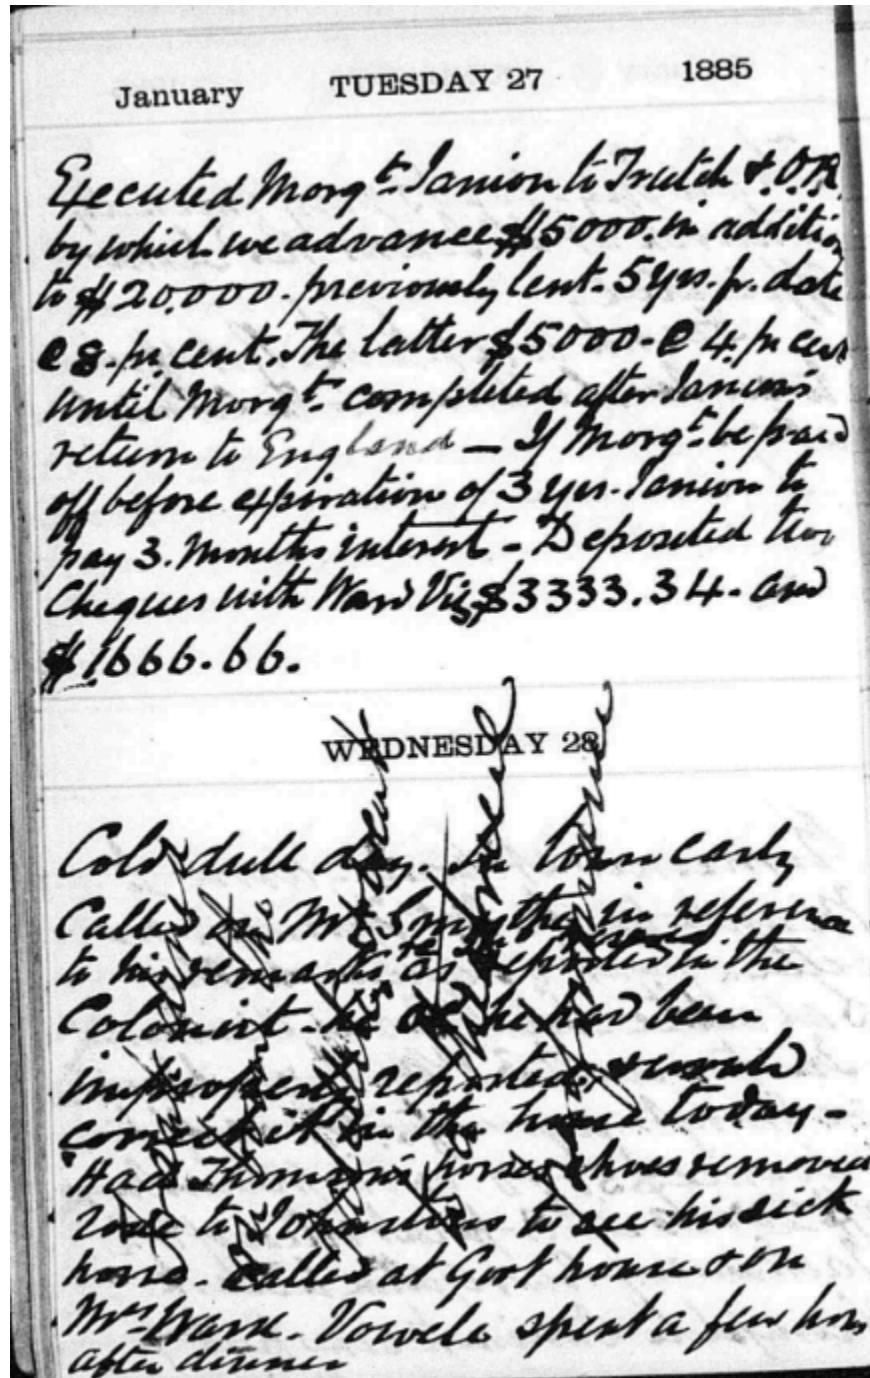 January TUESDAY 27 1885
Executed Morgt. Janion to Trutch & O.R.
by which we advance $5000. in addition
to $20.000. previously lent. 5 yrs. fr. date
@ 8. pr. cent. The latter $5000 - @ 4. pr cent
until Morgt. completed after Janion's
return to England — If Morgt. be paid
off before expiration of 3 yrs. Janion to
pay 3. months interest - Deposited two
Cheques with Ward Viz $3333.34 - and
$1666.66.
WEDNESDAY 28
Cold dull day. In town early
Called on Mr Smythe in reference
to his remarks as reported in the
Colonist - he had been
improperly reported & would
correct it in the house today -
Had Thomson's horses shoes removed
rode to Johnston's to see his sick
horse. Called at Govt house & on
Mrs Ward. Vowell spent a few hours
after dinner